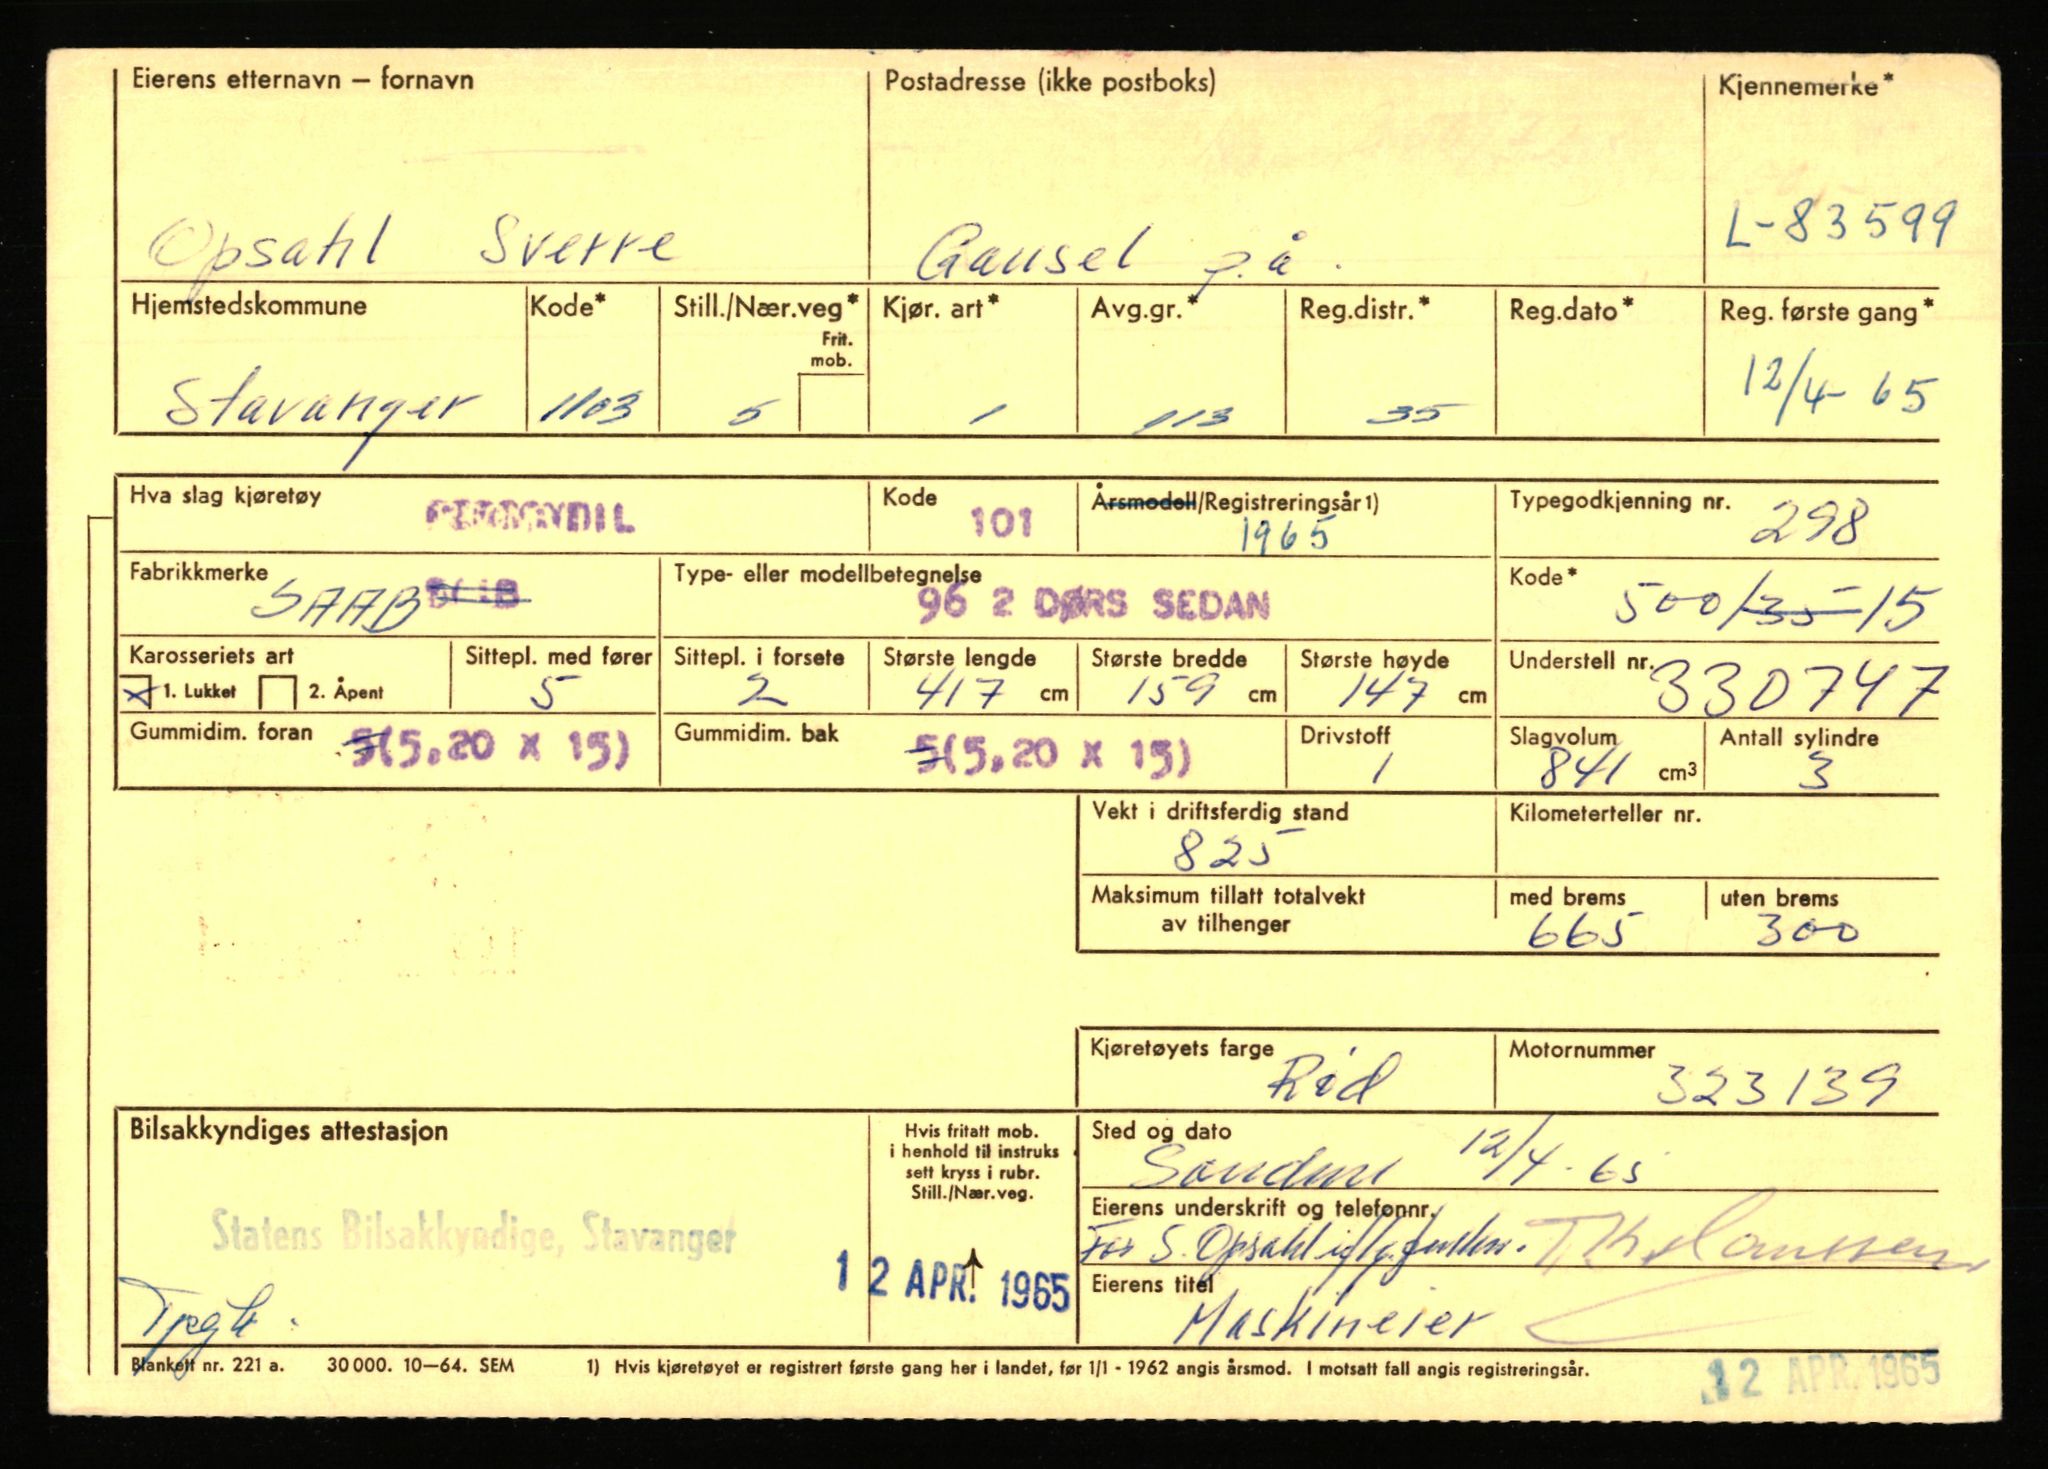 Eierens etternavn – fornavn Postadresse (ikke postboks) Kjennemerke*
Opsahl Sverre Gausel p.å. L-83599
Hjemstedskommune Kode* Still./Nær.veg* Kjør. art* Avg.gr.* Reg.distr.* Reg.dato* Reg. første gang*
Frit.
mob.
Stavanger 1103 5 1 113 35 12/4-65
Hva slag kjøretøy Kode Årsmodell/Registreringsår 1) Typegodkjenning nr.
101 1965 298
Fabrikkmerke Type- eller modellbetegnelse Kode*
SAAB 96 2 DØRS SEDAN 500/35-15
Karosseriets art Sittepl. med fører Sittepl. i forsete Største lengde Største bredde Største høyde Understell nr.
1. Lukket 2. Åpent 5 2 417 cm 159 cm 147 cm 330747
Gummidim. foran 5(5,20 X 15) Gummidim. bak 5(5,20 X 15) Drivstoff Slagvolum Antall sylindre
1 841 cm3 3
Vekt i driftsferdig stand Kilometerteller nr.
825
Maksimum tillatt totalvekt med brems uten brems
av tilhenger 665 300
Kjøretøyets farge Motornummer
Rød 323139
Bilsakkyndiges attestasjon Hvis fritatt mob. Sted og dato
i henhold til instruks
sett kryss i rubr.
Still./Nær.veg.
12/4-65
Eierens underskrift og telefonnr.
Statens Bilsakkyndige, Stavanger For S. Opsahl
12 APR. 1965 Eierens titel
Tpgk. Maskineier
Blankett nr. 221 a. 30 000. 10–64. SEM 1) Hvis kjøretøyet er registrert første gang her i landet, før 1/1 - 1962 angis årsmod. I motsatt fall angis registreringsår.
12 APR. 1965